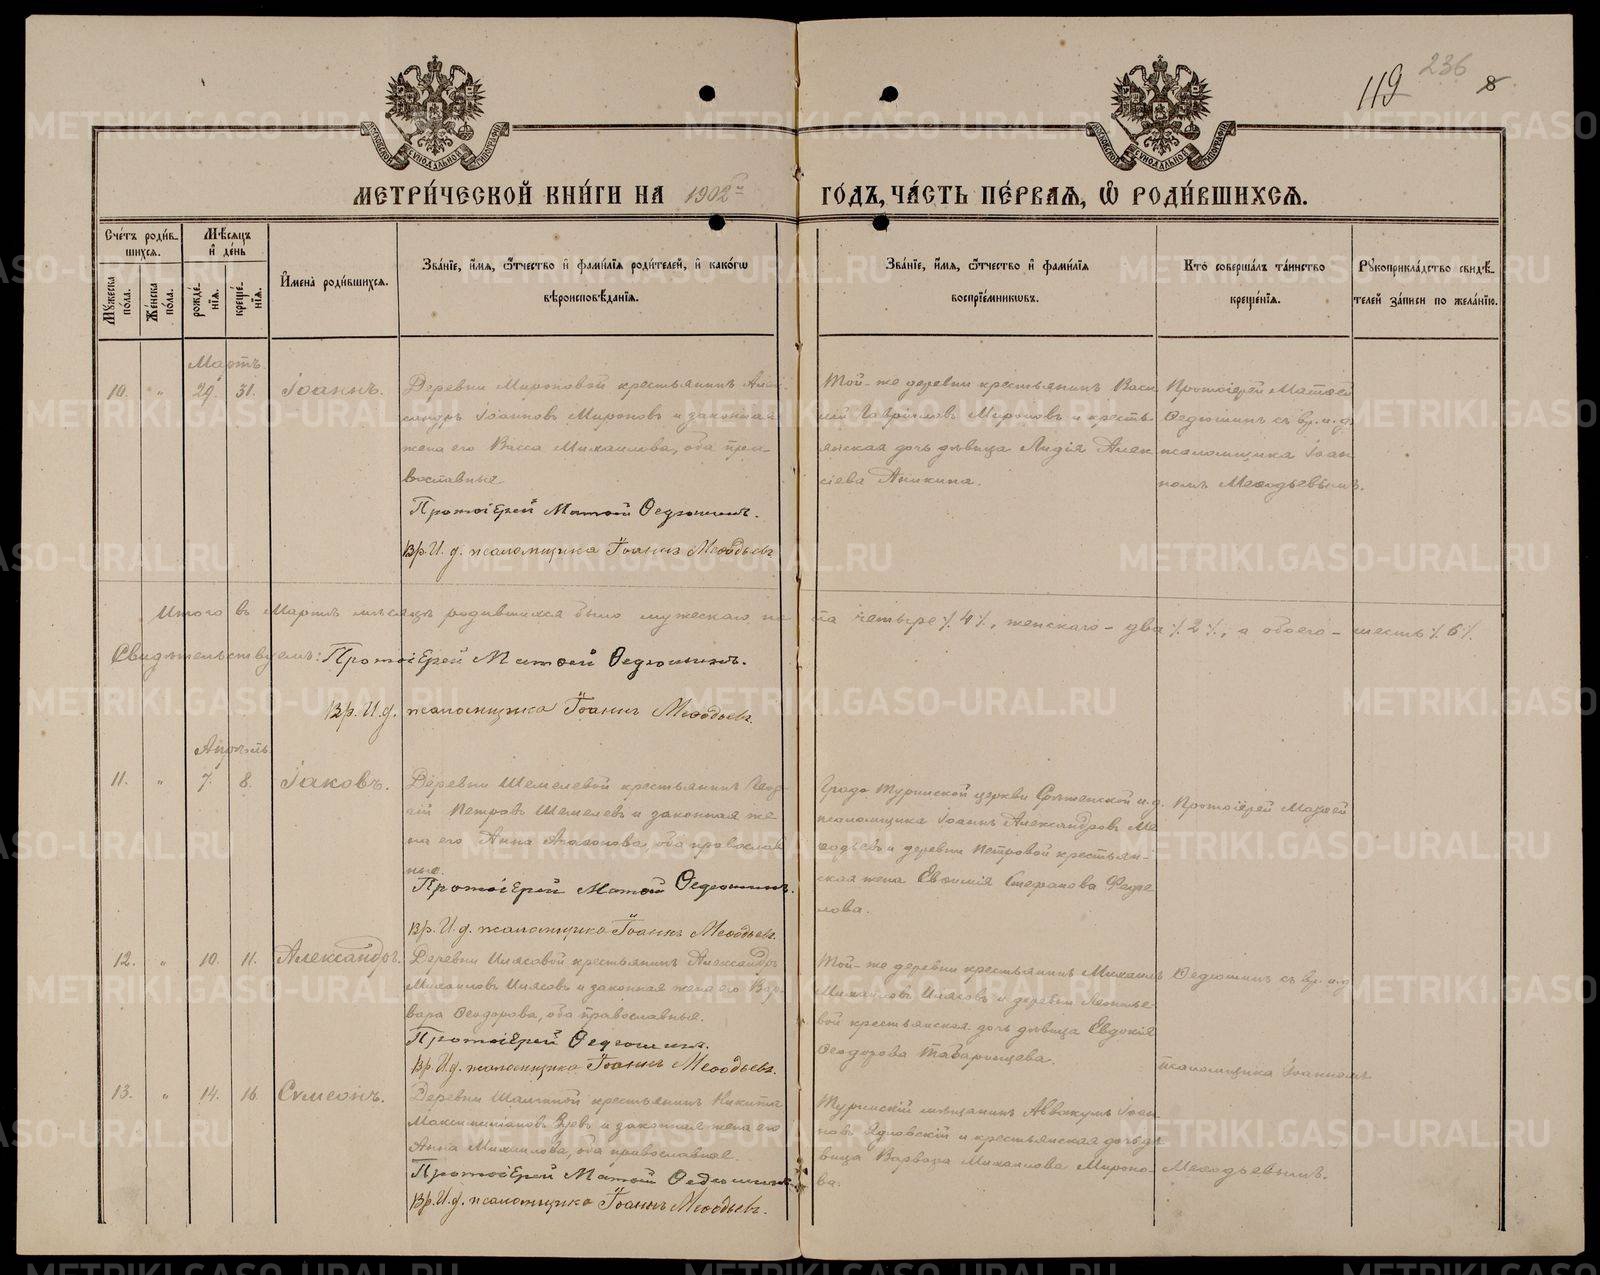 236
119
8
МОСКОВСКОЙ СѴНОДАЛЬНОЙ ТИПОГРАФІИ
МОСКОВСКОЙ СѴНОДАЛЬНОЙ ТИПОГРАФІИ
МЕТРИ́ЧЕСКОЙ КНИ́ГИ НА 1902й ГО́ДЪ, ЧА́СТЬ ПЕ́РВАЯ, Ѡ҆ РОДИ́ВШИХСЯ.
Сче́тъ роди́вшихся.
Мꙋ́жеска по́ла.
Же́нска по́ла.
Мѣ́сяцъ и҆ де́нь
рожде́нїѧ.
креще́нїѧ.
И҆мена̀ роди́вшихся.
Зва́нїе, и҆́мя, ѻ҆́тчество и҆ фами́лїя роди́телей, и҆ како́гѡ
вѣроисповѣ́данїя.
Зва́нїе, и҆́мя, ѻ҆́тчество и҆ фами́лїя
воспрїе́мникѡвъ.
Кто̀ соверша́лъ та́инство
креще́нїя.
Рꙋкоприкла́дство свидѣ́телей за́писи по жела́нїю.
Мартъ.
10. „ 29. 31. Іоаннъ.
Деревни Мироновой крестьянинъ Алек-
сандръ Іоанновъ Мироновъ и законная
жена его Васса Михаилова, оба пра-
вославные
Протоіерей Матѳей Ѳедюшинъ.
Вр. И. д. псаломщика Іоаннъ Меѳодьевъ
Той-же деревни крестьянинъ Васи
лий Гавріиловъ Мироновъ и кресть-
янская дочь дѣвица Лидія Алек
сіева Аникина.
Протоіерей Матѳей
Ѳедюшинъ съ вр. и. д.
псаломщика Іоан
номъ Меѳодьевымъ.
Итого въ Мартѣ мѣсяцѣ родившихся было мужескаго по ла четыре ٪ 4 ٪, женскаго - два ٪ 2 ٪, а обоего - шесть ٪ 6 ٪
Свидѣтельствуемъ: Протоіерей Матѳей Ѳедюшинъ.
Вр. И. д. псаломщика Іоаннъ Меѳодьевъ.
Апрѣль.
11. „ 7. 8. Іаковъ.
Деревни Шемелевой крестьянинъ Геор-
гій Петровъ Шемелевъ и законная же
на его Анна Агаѳонова, оба православ
ные.
Протоіерей Матѳей Ѳедюшинъ.
Вр. И. д. псаломщика Іоаннъ Меѳодьевъ.
Града Туринской церкви Срѣтенской и. д.
псаломщика Іоаннъ Александровъ Ме
ѳодьевъ и деревни Петровой крестьян-
ская жена Евѳимія Стефанова
лова.
Протоіерей Матѳей
12. „ 10. 11. Александръ.
Деревни Илясовой крестьянинъ Александръ
Михаиловъ Илясовъ и законная жена его Вар-
вара Ѳеодорова, оба православные.
Протоіерей Ѳедюшинъ.
Вр. И. д. псаломщика Іоаннъ Меѳодьевъ.
Той-же деревни крестьянинъ Михаилъ
Михаиловъ Илясовъ и деревни Леонтье-
вой крестьянская дочь дѣвица Евдокія
Ѳеодорова
Ѳедюшинъ съ вр. и. д.
псаломщика Іоанномъ
13. „ 14. 16. Сѵмеонъ.
Деревни крестьянинъ Никита
Максимиліановъ Зуевъ и законная жена его
Анна Михаилова, оба православные.
Протоіерей Матѳей Ѳедюшинъ
Вр. И. д. псаломщика Іоаннъ Меѳодьевъ.
Туринскій мѣщанинъ Аввакумъ Іоан
новъ и крестьянская дочь дѣ
вица Варвара Михаилова Мироно-
ва.
Меѳодьевымъ.
METRIKI.GASO-URAL.RU